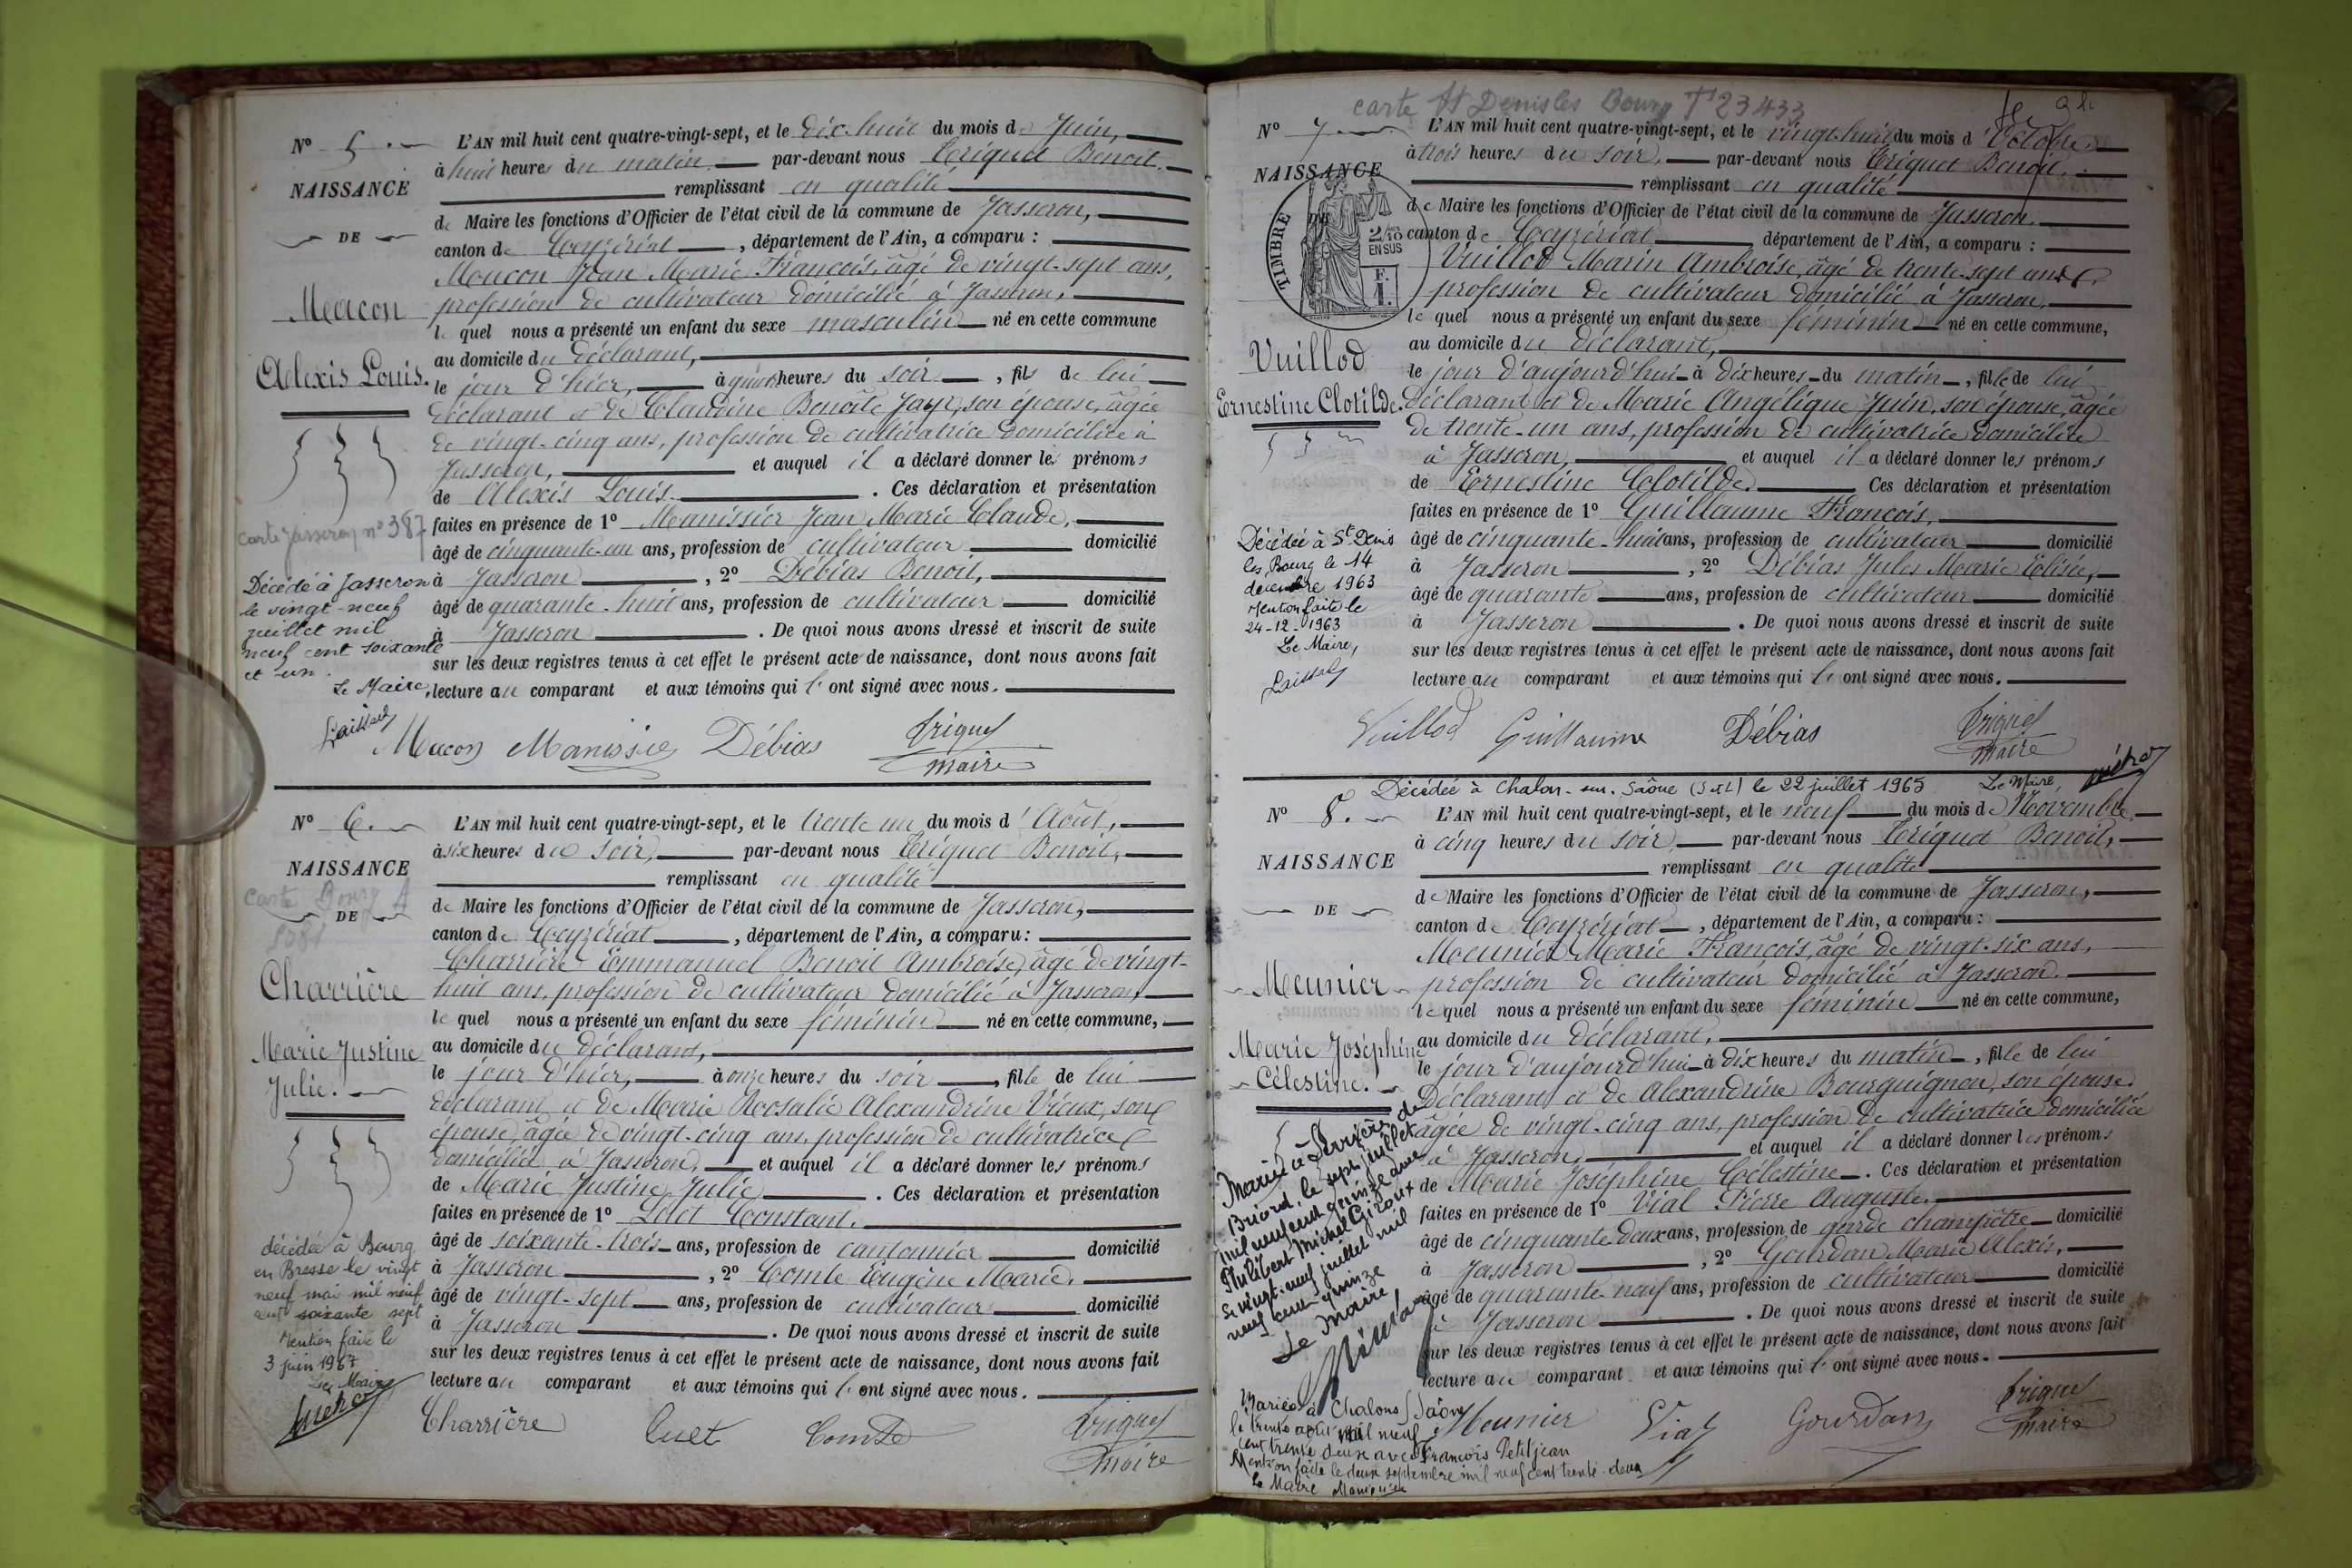 N° 5.
NAISSANCE
DE
Macon
Alexis Louis.
carte Jasseron n° 387
Décédé à Jasseron
le vingt-neuf
juillet mil
neuf cent soixante
et un.
Le Maire,
L'AN mil huit cent quatre-vingt-sept, et le dix-huit du mois de Juin,
à huit heures du matin par-devant nous Triquet Benoit,
remplissant en qualité
de Maire les fonctions d'Officier de l'état civil de la commune de Jasseron,
canton de Ceyzériat, département de l'Ain, a comparu :
Macon Jean Marie François, âgé de vingt-sept ans,
profession de cultivateur domicilié à Jasseron,
lequel nous a présenté un enfant du sexe masculin né en cette commune
au domicile du déclarant,
le jour d'hier, à heures du soir, fils de lui
déclarant et de Claudine Benoîte Jayr, son épouse, âgée
de vingt-cinq ans, profession de cultivatrice domiciliée à
Jasseron, et auquel il a déclaré donner les prénoms
de Alexis Louis. Ces déclaration et présentation
faites en présence de 1° Manissier Jean Marie Claude,
âgé de cinquante-un ans, profession de cultivateur domicilié
à Jasseron, 2° Débias Benoit,
âgé de quarante-huit ans, profession de cultivateur domicilié
à Jasseron. De quoi nous avons dressé et inscrit de suite
sur les deux registres tenus à cet effet le présent acte de naissance, dont nous avons fait
lecture au comparant et aux témoins qui l'ont signé avec nous.
Macon Manissier Débias Triquet
maire
N° 6.
NAISSANCE
carte Bourg A
DE
Charrière
Marie Justine
Julie.
décédée à Bourg
en Bresse le vingt
neuf mai mil neuf
cent soixante sept
Mention faite le
3 juin 1967
Le Maire
L'AN mil huit cent quatre-vingt-sept, et le trente un du mois d'Août,
à six heures du soir, par-devant nous Triquet Benoit,
remplissant en qualité
de Maire les fonctions d'Officier de l'état civil de la commune de Jasseron,
canton de Ceyzériat, département de l'Ain, a comparu :
Charrière Emmanuel Benoit Ambroise, âgé de vingt-
huit ans, profession de cultivateur domicilié à Jasseron,
lequel nous a présenté un enfant du sexe féminin né en cette commune,
au domicile du déclarant,
le jour d'hier, à onze heures du soir, fille de lui
déclarant et de Marie Roosalie Alexandrine Vieux, son
épouse, âgée de vingt-cinq ans, profession de cultivatrice
domiciliée à Jasseron, et auquel il a déclaré donner les prénoms
de Marie Justine Julie. Ces déclaration et présentation
faites en présence de 1° Constant,
âgé de soixante-trois ans, profession de cantonnier domicilié
à Jasseron, 2° Comte Eugène Marie,
âgé de vingt-sept ans, profession de cultivateur domicilié
à Jasseron. De quoi nous avons dressé et inscrit de suite
sur les deux registres tenus à cet effet le présent acte de naissance, dont nous avons fait
lecture au comparant et aux témoins qui l'ont signé avec nous.
Charrière Comte Triquet
maire
carte St Denis les Bourg T 23433
N° 7
NAISSANCE
TIMBRE
2/10
EN SUS
Vuillod
Ernestine Clotilde.
Décédée à St Denis
les Bourg le 14
décembre 1963
Mention faite le
24-12-1963
Le Maire,
L'AN mil huit cent quatre-vingt-sept, et le vingt-huit du mois d'Octobre,
à trois heures du soir, par-devant nous Triquet Benoit,
remplissant en qualité
de Maire les fonctions d'Officier de l'état civil de la commune de Jasseron,
canton de Ceyzériat, département de l'Ain, a comparu :
Vuillod Marin Ambroise, âgé de trente-sept ans,
profession de cultivateur domicilié à Jasseron,
lequel nous a présenté un enfant du sexe féminin né en cette commune,
au domicile du déclarant,
le jour d'aujourd'hui à dix heures du matin, fille de lui
déclarant et de Marie Angélique Juin, son épouse, âgée
de trente-un ans, profession de cultivatrice domiciliée
à Jasseron, et auquel il a déclaré donner les prénoms
de Ernestine Clotilde. Ces déclaration et présentation
faites en présence de 1° Guillaume François,
âgé de cinquante-huit ans, profession de cultivateur domicilié
à Jasseron, 2° Débias Jules Marie Elisée,
âgé de quarante ans, profession de cultivateur domicilié
à Jasseron. De quoi nous avons dressé et inscrit de suite
sur les deux registres tenus à cet effet le présent acte de naissance, dont nous avons fait
lecture au comparant et aux témoins qui l'ont signé avec nous.
Vuillod Guillaume Débias Triquet
maire
Décédée à Chalon-sur-Saône (S et L) le 22 juillet 1965 Le Maire
N° 8.
NAISSANCE
DE
Meunier
Marie Joséphine
Célestine.
Mariée à Serrières de
Briord, le sept juillet
mil neuf cent quinze avec
Philibert Michel Giroux
Le vingt-neuf juillet mil
neuf cent quinze
Le Maire,
L'AN mil huit cent quatre-vingt-sept, et le neuf du mois de Novembre,
à cinq heures du soir, par-devant nous Triquet Benoit,
remplissant en qualité
de Maire les fonctions d'Officier de l'état civil de la commune de Jasseron,
canton de Ceyzériat, département de l'Ain, a comparu :
Meunier Marie François, âgé de vingt-six ans,
profession de cultivateur domicilié à Jasseron,
lequel nous a présenté un enfant du sexe féminin né en cette commune,
au domicile du déclarant,
le jour d'aujourd'hui à dix heures du matin, fille de lui
déclarant et de Alexandrine Bourguignon, son épouse
âgée de vingt-cinq ans, profession de cultivatrice domiciliée
à Jasseron, et auquel il a déclaré donner les prénoms
de Marie Joséphine Célestine. Ces déclaration et présentation
faites en présence de 1° Vial Pierre Auguste,
âgé de cinquante deux ans, profession de garde champêtre domicilié
à Jasseron, 2° Gourdan Marie Alexis,
âgé de quarante-neuf ans, profession de cultivateur domicilié
à Jasseron. De quoi nous avons dressé et inscrit de suite
sur les deux registres tenus à cet effet le présent acte de naissance, dont nous avons fait
lecture au comparant et aux témoins qui l'ont signé avec nous.
Meunier Vial Gourdan Triquet
maire
Mariée à Chalons s/ Saône
le trente août mil neuf
cent trente deux avec François Petitjean
Mention faite le deux septembre mil neuf cent trente-deux
Le Maire